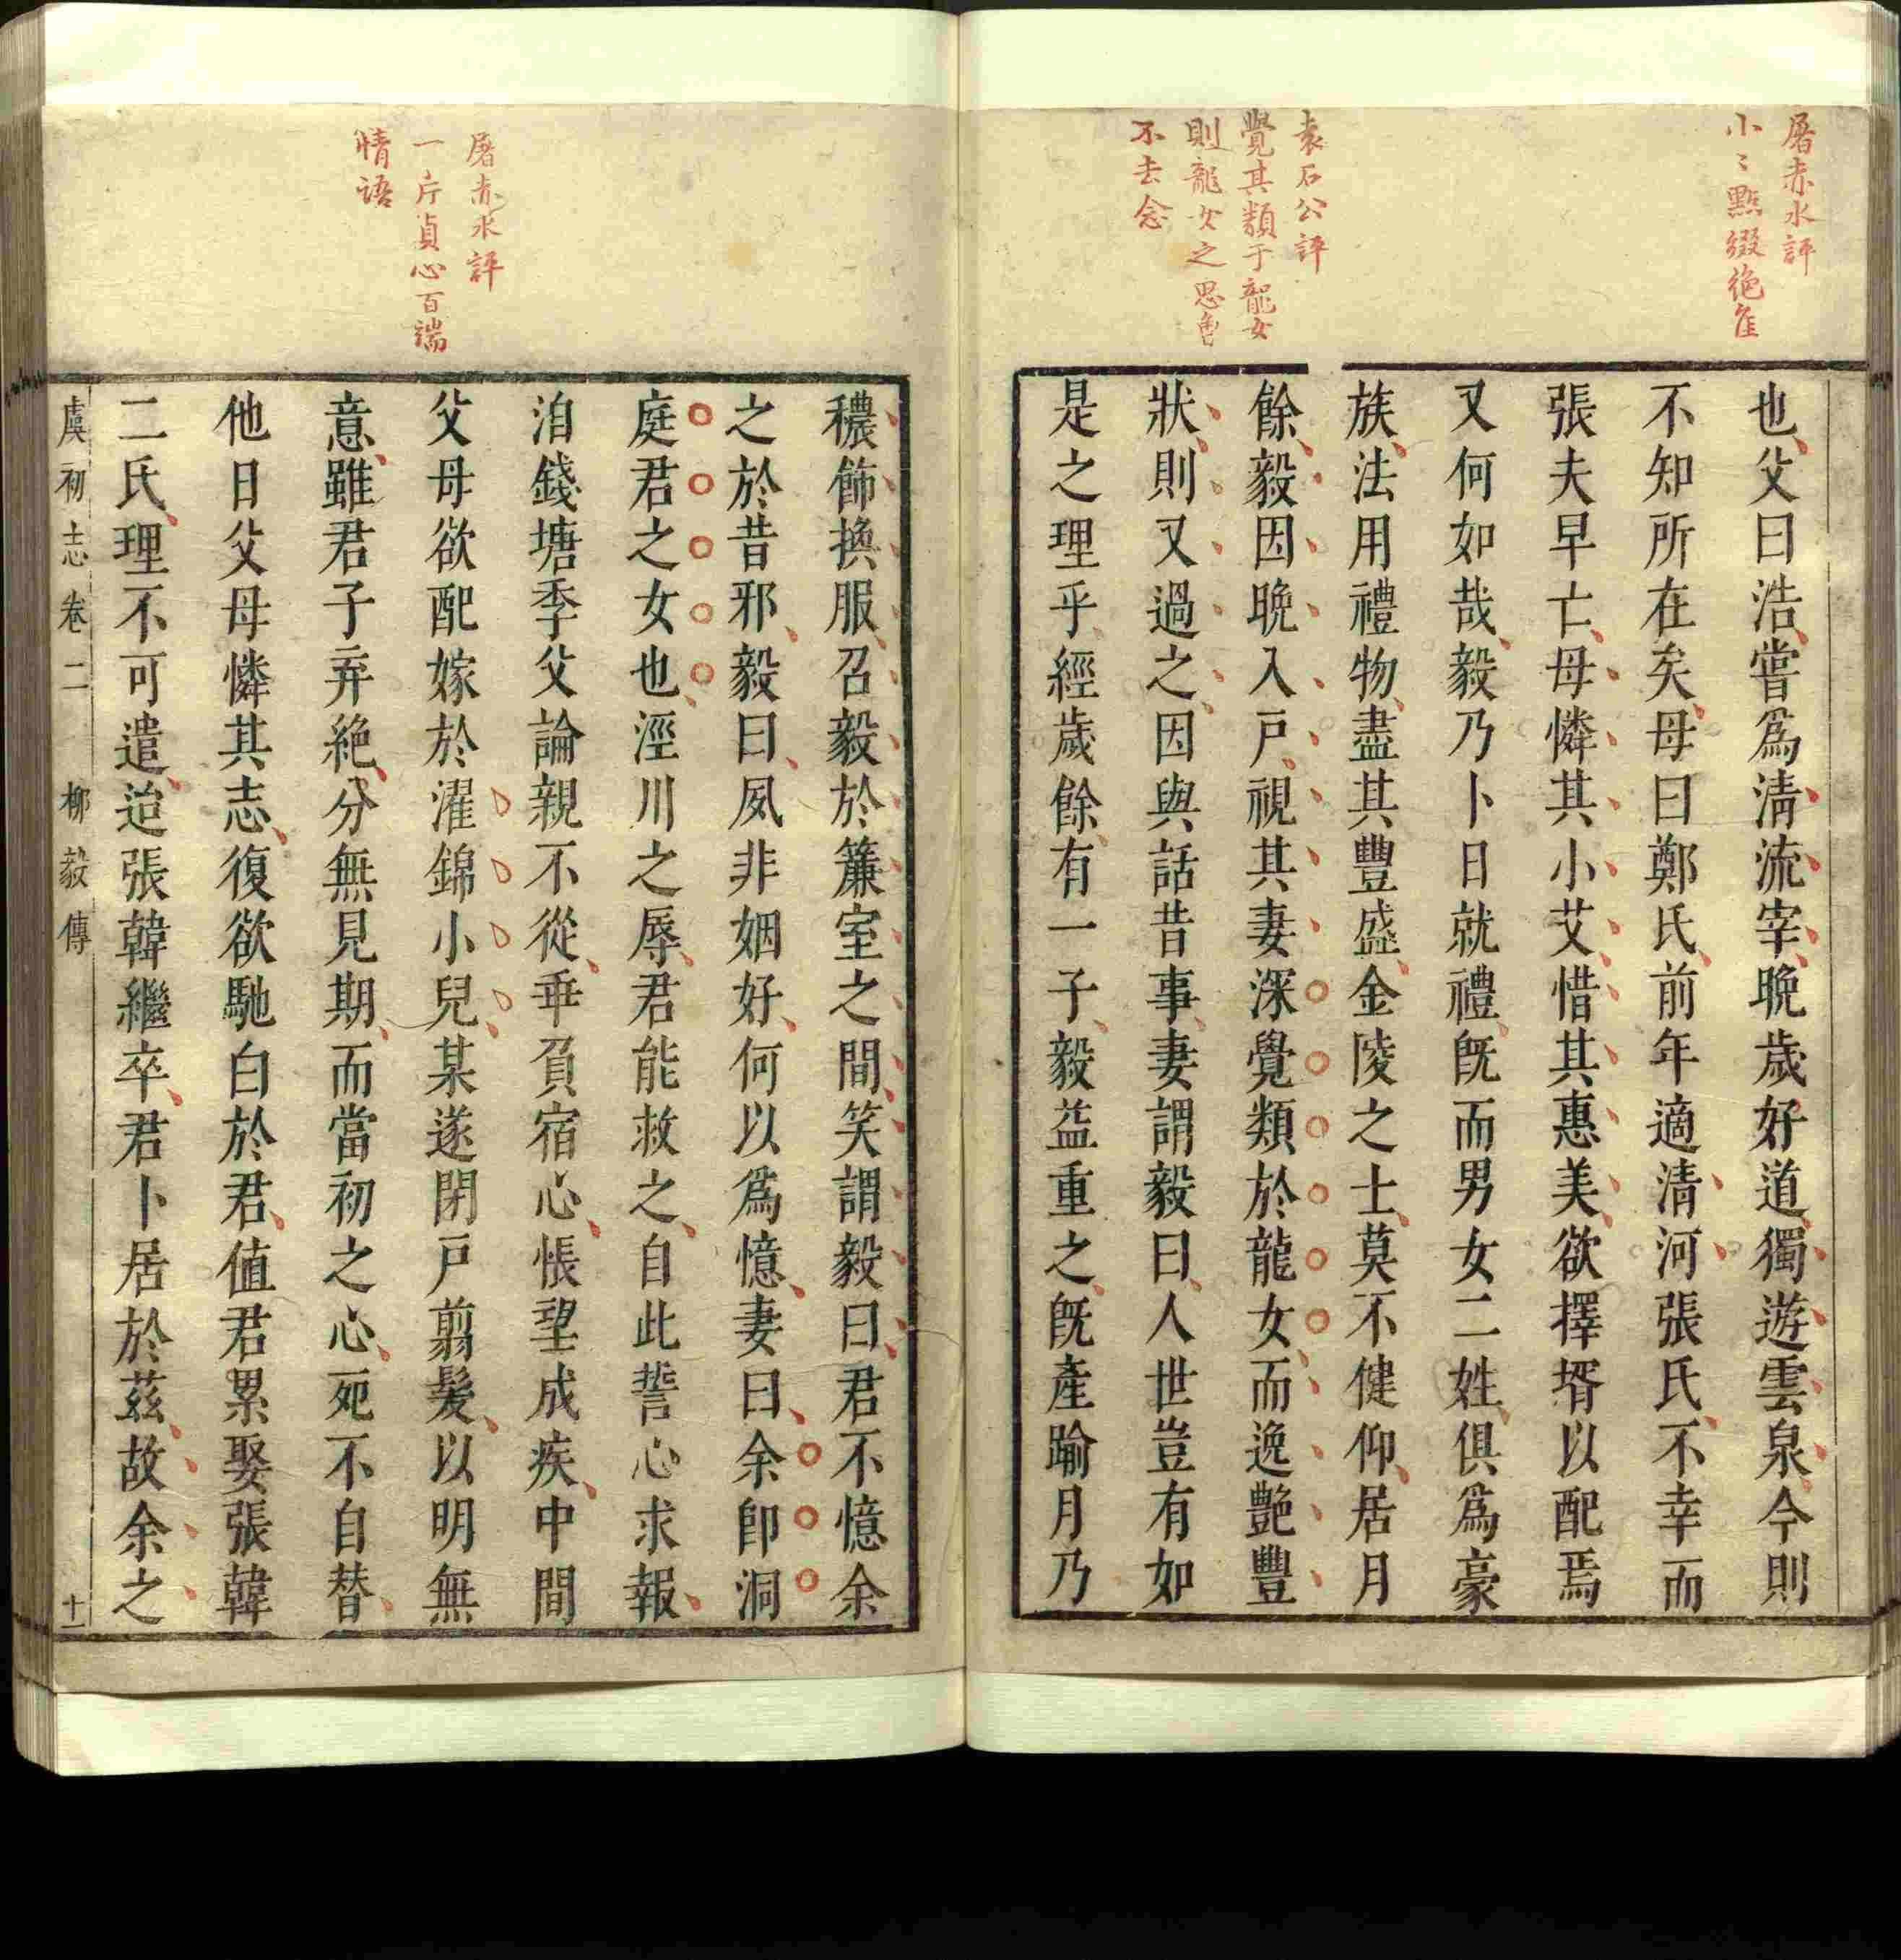 屠赤水評
小〻點綴絶佳
袁石公評
覺其類于龍女
則龍女之思魯
不去念
也父曰浩嘗爲清流宰晩歲好道獨遊雲泉今則
不知所在矣母曰鄭氏前年適清河張氏不幸而
張夫早亡母憐其小艾惜其惠美欲擇壻以配焉
又何如哉毅乃卜日就禮旣而男女二姓俱爲豪
族法用禮物盡其豐盛金陵之士莫不健仰居月
餘毅因晩入戸視其妻深覺類於龍女而逸艷豐
狀則又過之因與話昔事妻謂毅曰人世豈有如
是之理乎經歲餘有一子毅益重之旣產踰月乃
屠赤水評
一片貞心百端
情語
穠飾換服召毅於簾室之間笑謂毅曰君不憶余
之於昔邪毅曰夙非姻好何以爲憶妻曰余卽洞
庭君之女也涇川之辱君能救之自此誓心求報
洎錢塘季父論親不從乖負宿心悵望成疾中間
父母欲配嫁於濯錦小兒某遂閉戸翦髮以明無
意雖君子弃絶分無見期而當初之心死不自替
他日父母憐其志復欲馳白於君値君累娶張韓
二氏理不可遣迨張韓繼卒君卜居於茲故余之
虞初志卷二 柳毅傳 十一